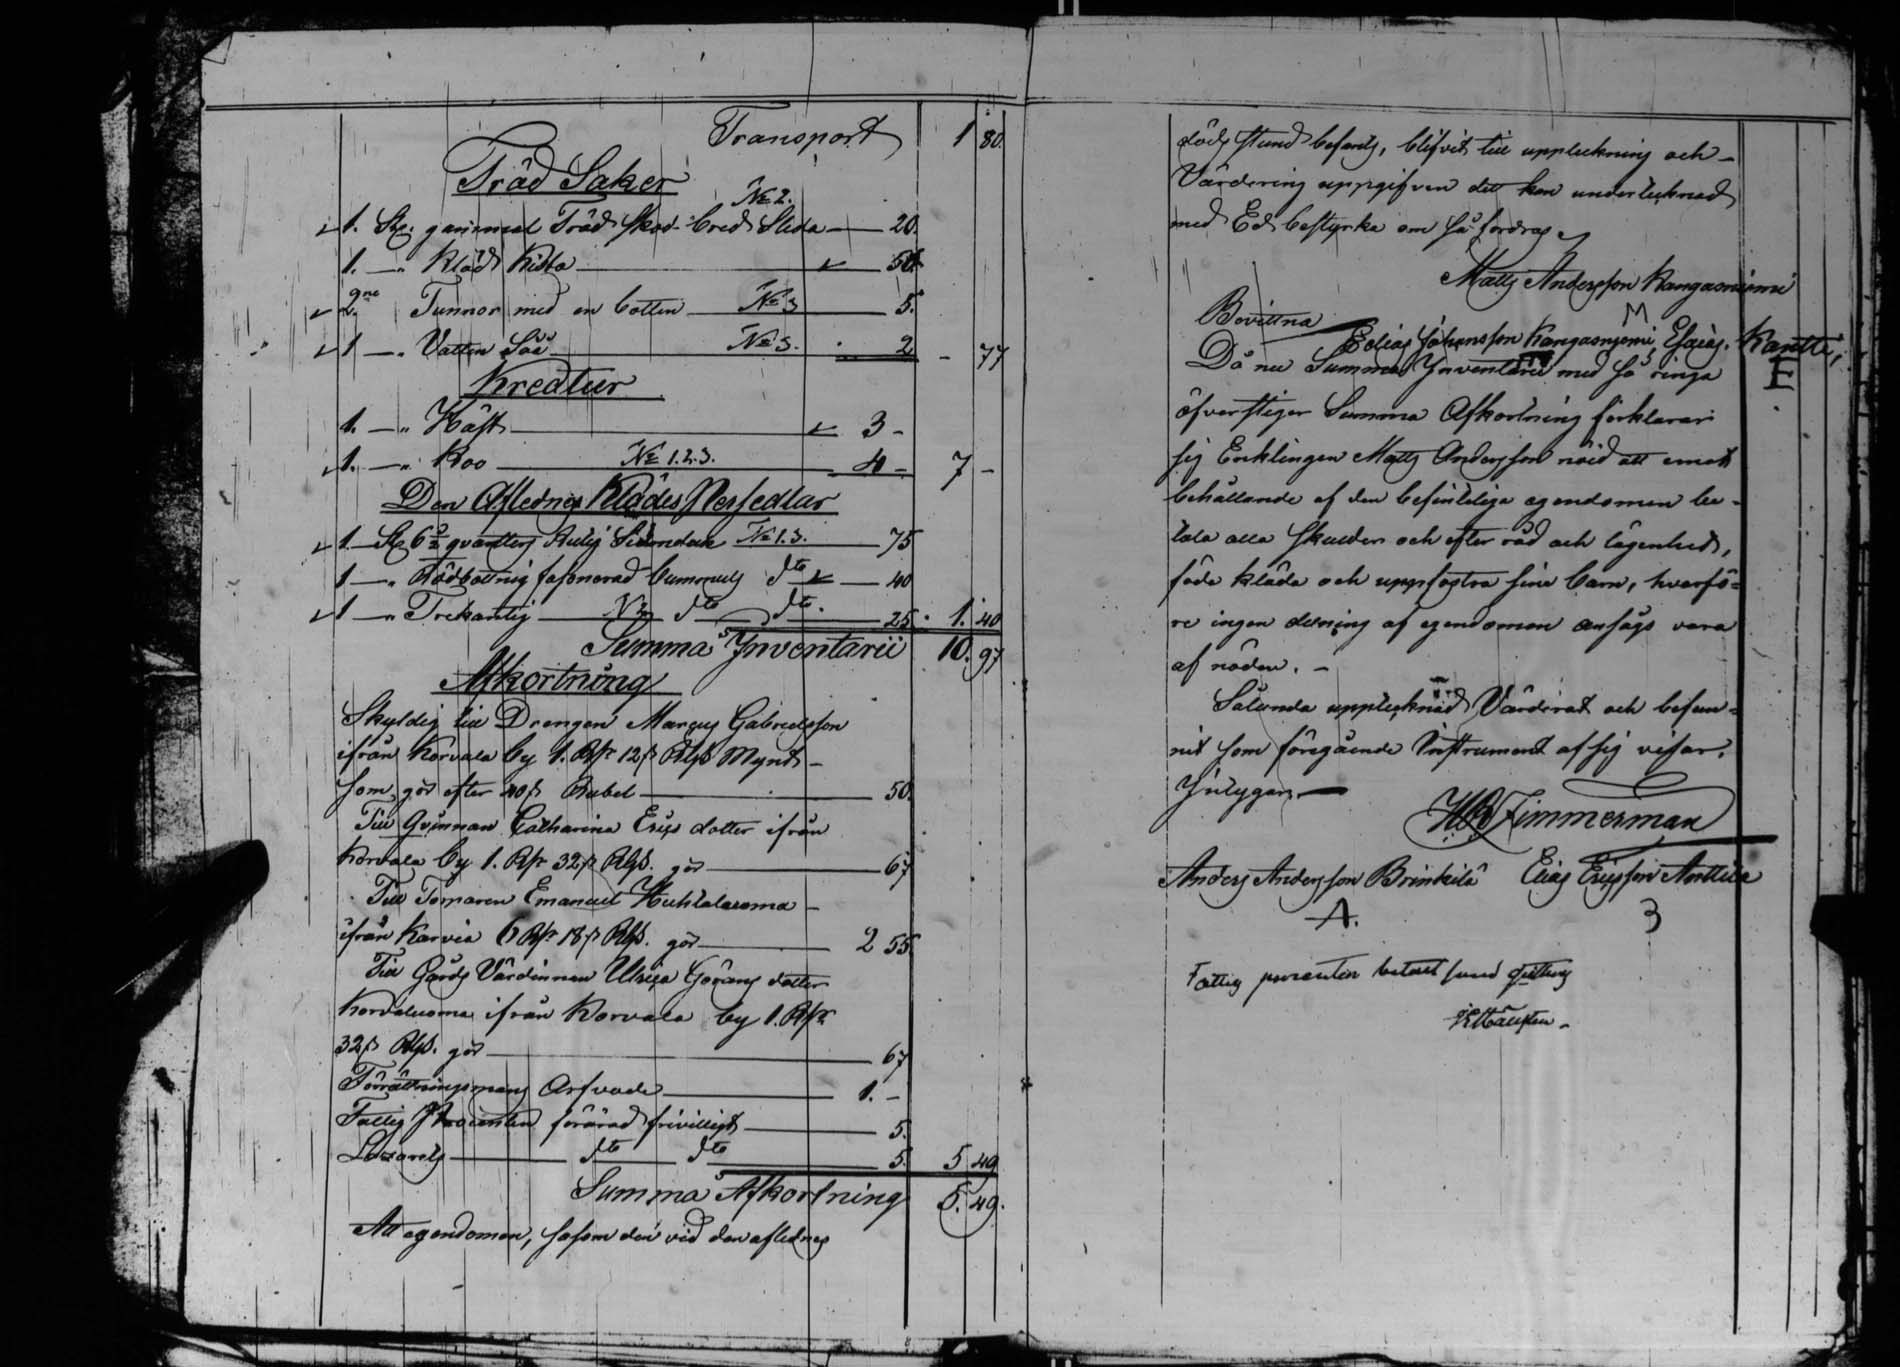 Transport 1 80.
Träd Saker
No 2.
1. St. gammal Träd Skod bred Släda 20.
1. —"— Kläd Kista 50.
2ne Tunnor med en botten No 3 5.
1 —"— Vatten Såå No 3. 2 - 77
Kreatur
1. —"— Häst 3 -
1. —"— Koo No 1.2.3. 4 - 7 -
Den Aflednes Klädes Persedlar
1. St. 6 qvarters Sidenduk No 1.3. 75
1 —"— Rödbottnig fasonerad bummuls dto 40
1 —"— Trekantig No dto dto. 25. 1. 40
Summa Inventarii 10. 97
Afkortning
Skyldig till Drengen Marcus Gabrielsson
ifrån Korvala by 1. Rdr 12 s Rgs Mynt
som gör efter 40 s Rubel 50.
Till Qvinnan Catharina Erics dotter ifrån
Korvala by 1. Rdr 32 s Rgs. gör 67
Till Tomaren Emanuel
ifrån Karvia 6 Rdr 18 s Rgs. gör 2 55
Till Gårds Värdinnan Ulrica Görans dotter
Korvaluoma ifrån Korvala by 1. Rdr
32 s Rgs. gör 67
Förrättningsmans Arfvode 1. -
Fattig Procenten förärad frivilligt 5.
Lazarets dto dto 5. 5 49
Summa Afkortning 5. 49.
Att egendomen, såsom den vid den aflednes
döds stund befants, blifvit till uppteckning och
Värdering uppgifven det kan undertecknad
med Ed bestyrka om så fordras
Matts Andersson Kangasniemi
M
Bevittna
Elias Johansson Kangasniemi, Esaias Kantti,
E
Då nu Summa Inventarii med så ringa
öfverstiger Summa Afkortning förklarar
sig Enklingen Matts Andersson nöid att emot
behållande af den befinteliga egendomen be-
tala alla skulder och efter råd och lägenhet,
föda kläda och uppfostra sine barn, hvarfö-
re ingen delning af egendomen ansågs vara
af nöden. -
Sålunda upptecknad Värderat och befun-
nit som föregående Instrument af sig visar.
Intygar
Zimmerman
Anders Andersson Brinkilä Elias Ericsson Anttila
A. 3
Fattig procenten betalt